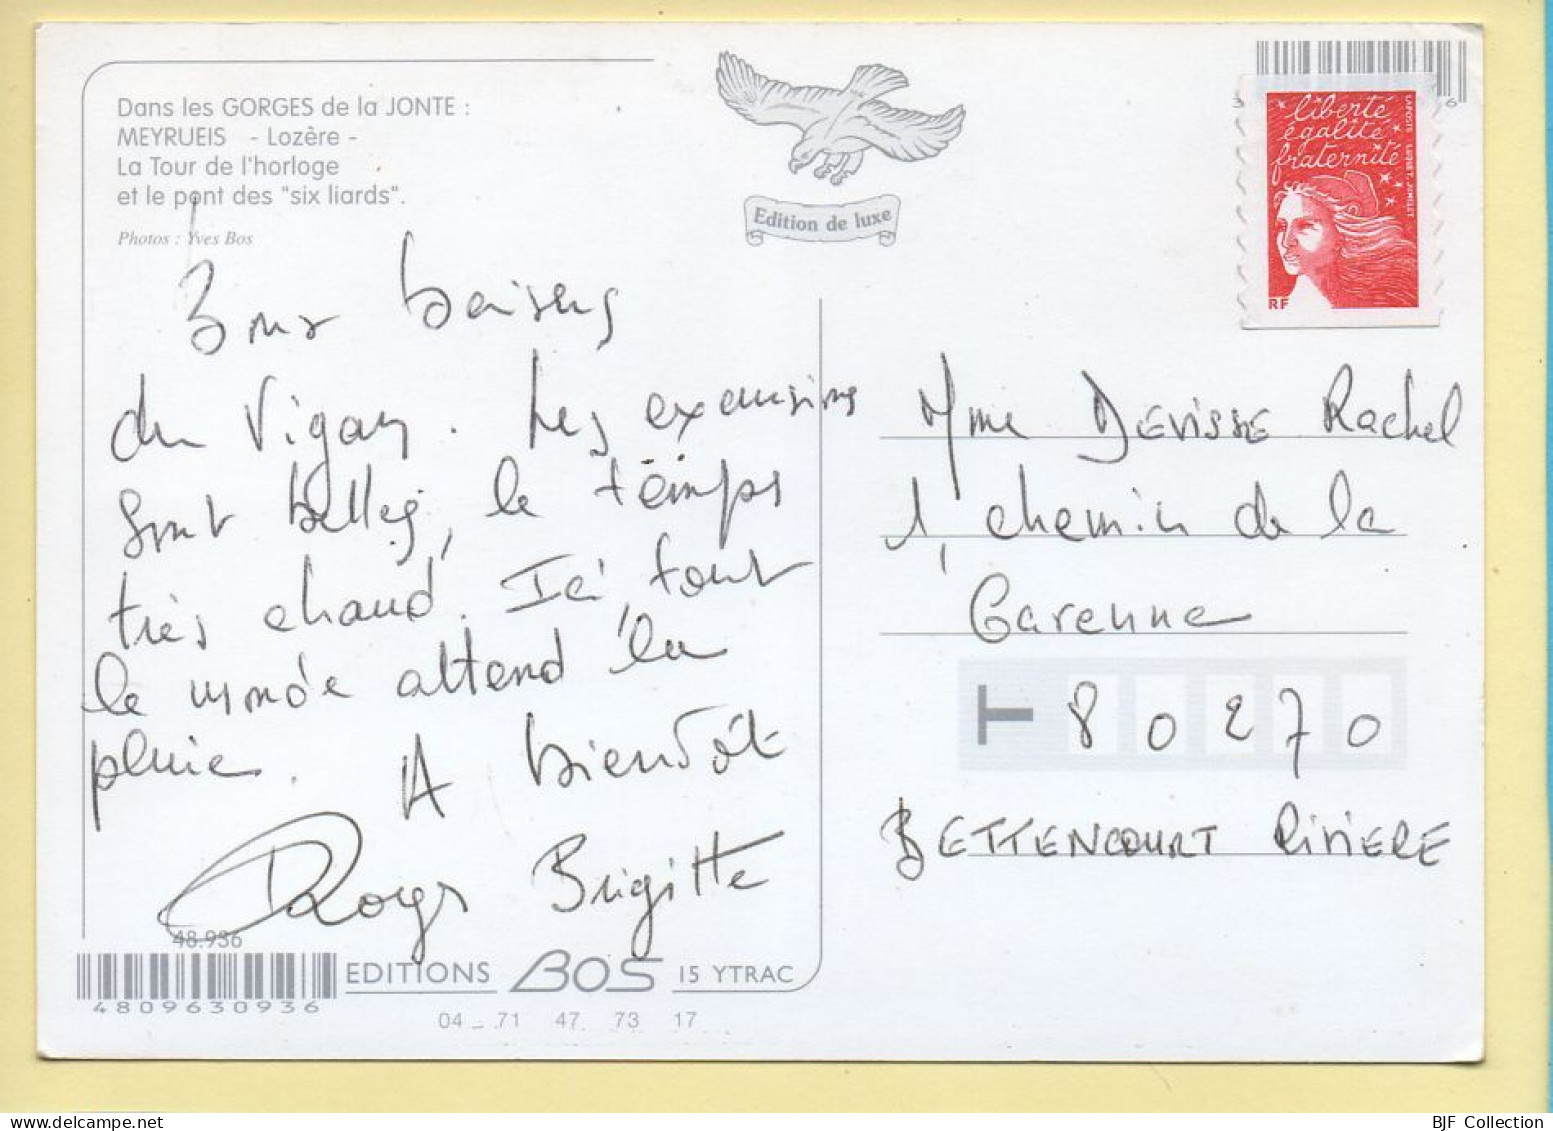 Dans les GORGES de la JONTE :
MEYRUEIS - Lozère -
La Tour de l'horloge
et le pont des "six liards".
Photos : Yves Bos
Edition de luxe
liberté
égalité
fraternité
LAPOSTE LUQUET.JUMELET
RF
Bons baisers
du Vigan. Les excursions
sont belles, le temps
très chaud. Ici, tout
le monde attend la
pluie. A bientôt
Brigitte
Mme DEVISSE Rachel
1, chemin de la
Garenne
80270
BETTENCOURT RIVIERE
48.936
4809630936
EDITIONS BOS 15 YTRAC
04 71 47 73 17
BJF Collection